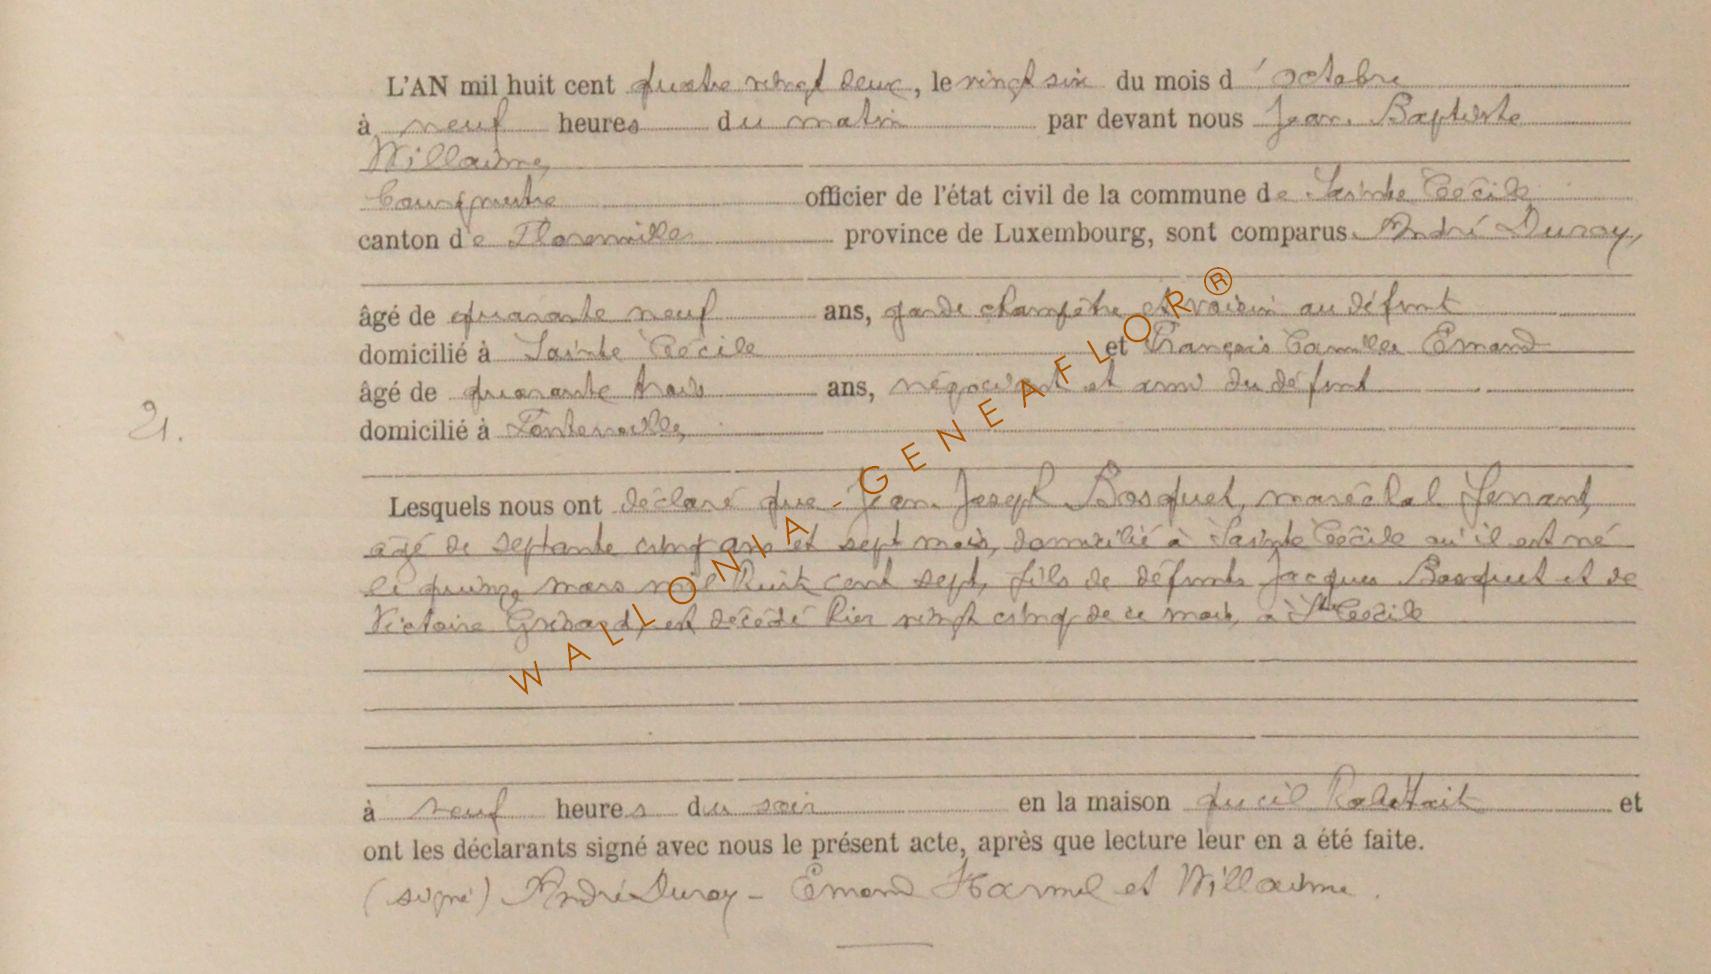 L'AN mil huit cent quatre vingt deux, le vingt six du mois d'octobre
à neuf heures du matin par devant nous Jean Baptiste
Willaime,
Bourgmestre officier de l'état civil de la commune de Sainte Cécile
canton de Florenville province de Luxembourg, sont comparus André Duroy,
âgé de quarante neuf ans, garde champêtre et voisin au défunt
domicilié à Sainte Cécile et François Camille Emond
âgé de quarante trois ans, négociant et ami du défunt
domicilié à Fontenoille,
21.
Lesquels nous ont déclaré que Jean Joseph Bosquet, maréchal ferrant,
agé de septante cinq ans et sept mois, domicilié à Sainte Cécile où il est né
le quinze mars mil huit cent sept, fils de défunts Jacques Bosquet et de
Victoire est décédé hier vingt cinq de ce mois, à Ste Cécile
à neuf heures du soir en la maison qu'il habitait et
ont les déclarants signé avec nous le présent acte, après que lecture leur en a été faite.
(signé) André Duroy - Emond Harmel et Willaime.
WALLONIA-GENEAFLOR®